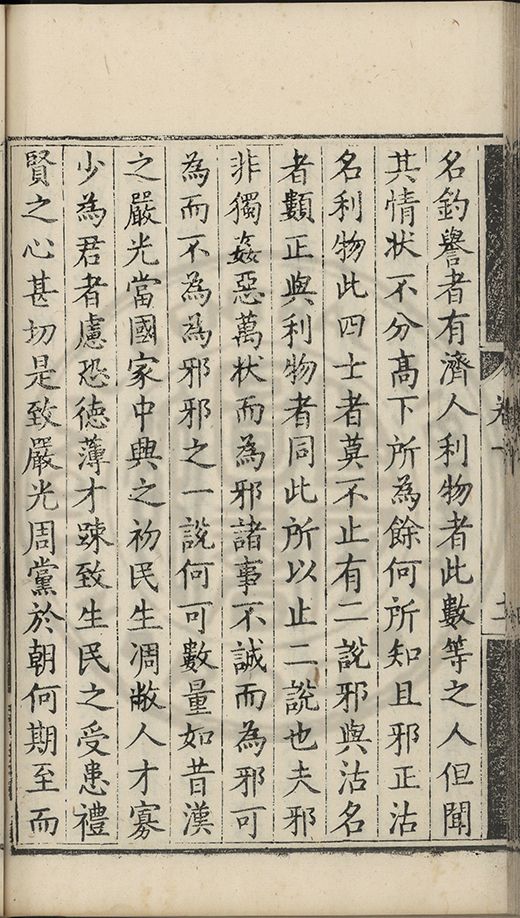 名釣譽者有濟人利物者此數等之人但聞
其情状不分高下所為餘何所知且邪正沽
名利物此四士者莫不止有二說邪與沽名
者類正與利物者同此所以止二說也夫邪
非獨姦惡萬状而為邪諸事不誠而為邪可
為而不為為邪邪之一說何可數量如昔漢
之嚴光當國家中興之初民生凋敝人才寡
少為君者慮恐徳薄才踈致生民之受患禮
賢之心甚切是致嚴光周黨於朝何期至而